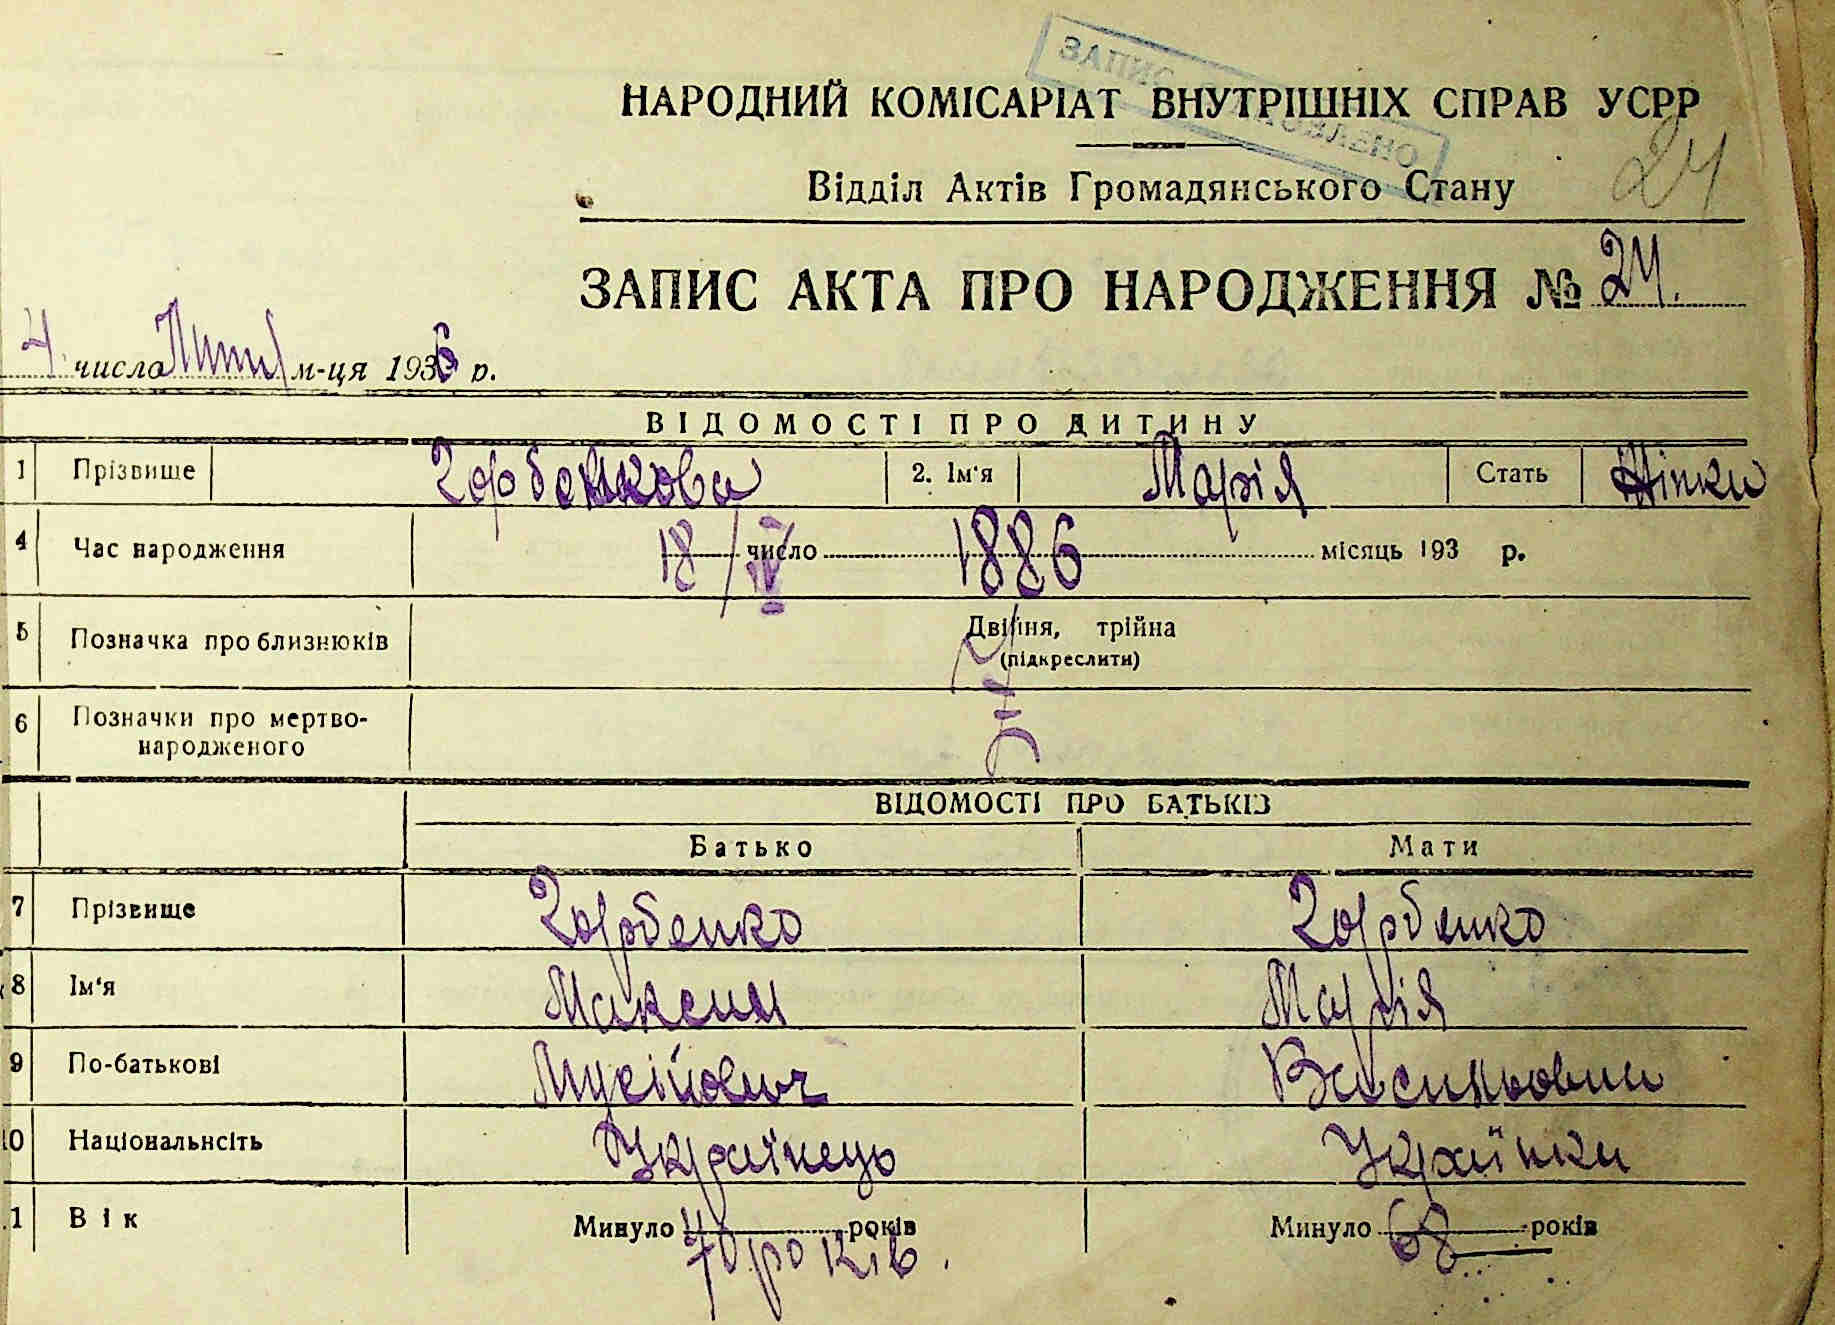 ЗАПИС ВІДНОВЛЕНО
НАРОДНИЙ КОМІСАРІАТ ВНУТРІШНІХ СПРАВ УСРР
Відділ Актів Громадянського Стану
24
ЗАПИС АКТА ПРО НАРОДЖЕННЯ № 24.
4 число Липня м-ця 1936 р.
ВІДОМОСТІ ПРО ДИТИНУ
1 Прізвище Горбенкова 2. Ім'я Марія Стать Жінки
4 Час народження 18/IV число 1886 місяць 193 р.
5 Позначка про близнюків Двійня, трійна
(підкреслити)
6 Позначки про мертво-
народженого
ВІДОМОСТІ ПРО БАТЬКІВ
Батько Мати
7 Прізвище Горбенко Горбенко
8 Ім'я Максим Марія
9 По-батькові Мусійович Васильовна
10 Національнсіть Українець Українка
11 Вік Минуло 70 років років. Минуло 68 років